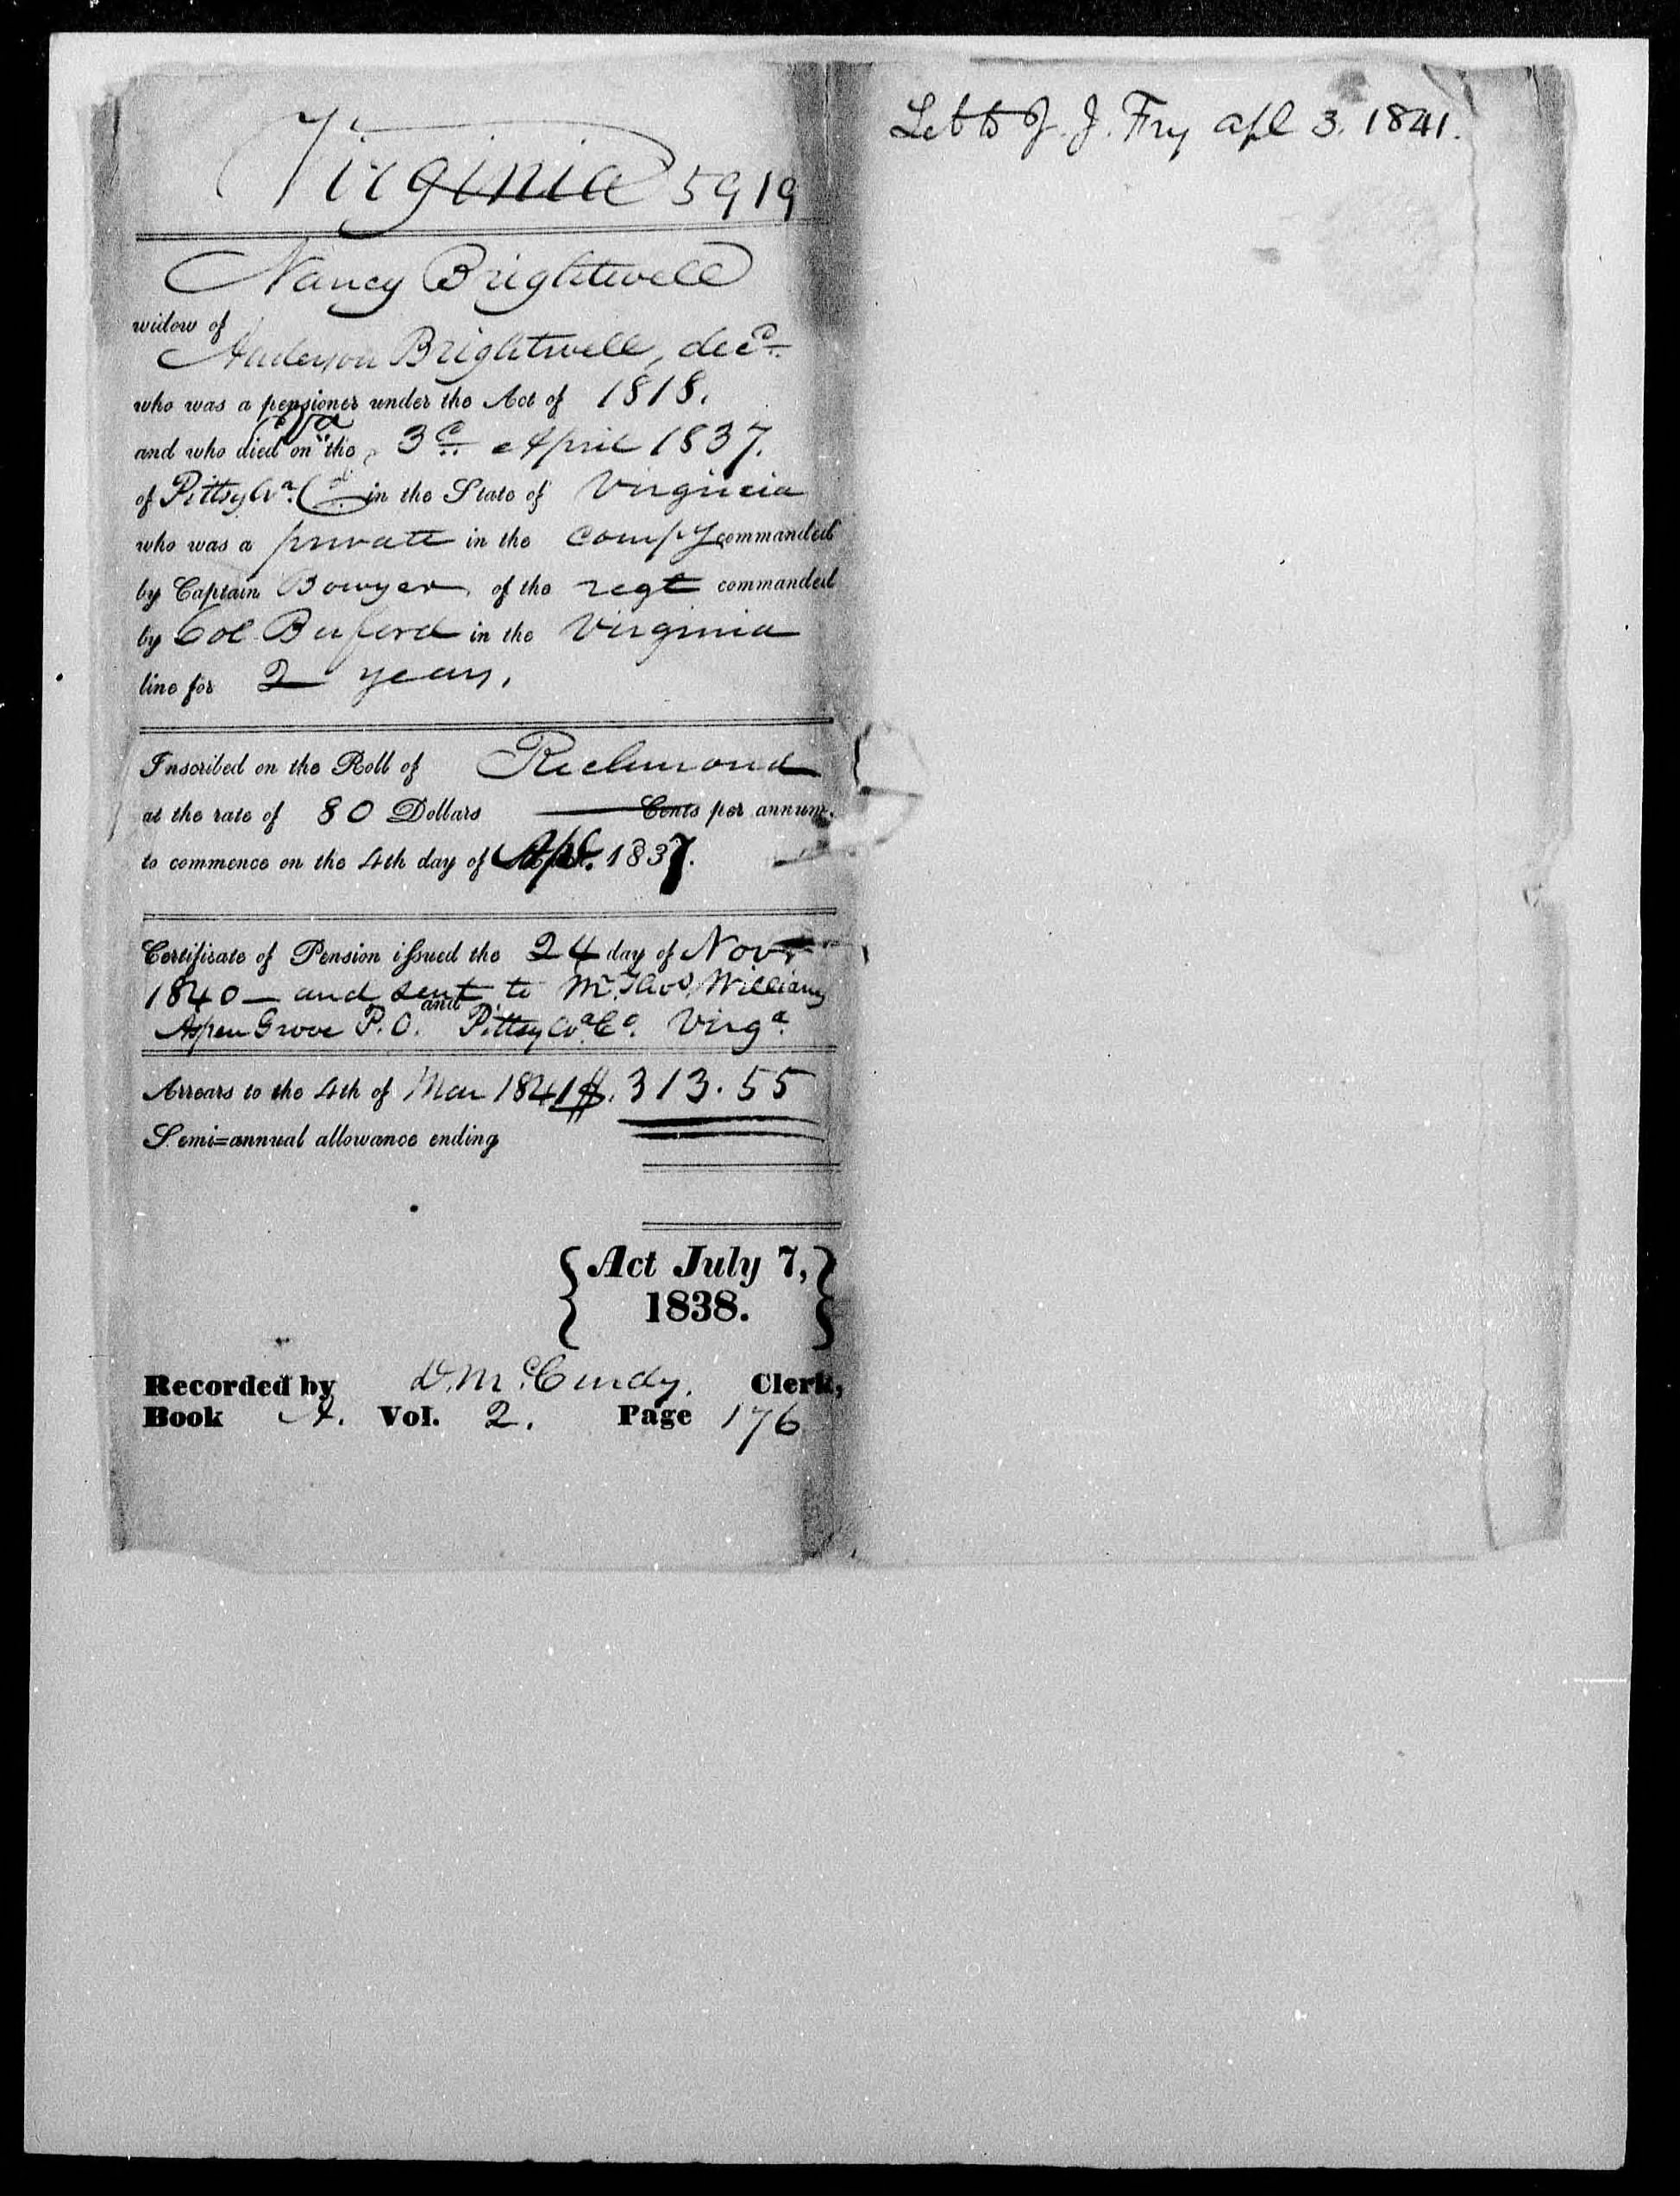 Virginia 5919
Nancy Brightwell
widow of
Anderson Brightwell, decd.
who was a pensioner under the Act of 1818.
and who died on the 3d April 1837.
of Pittsylva. Co. in the State of Virginia
who was a private in the compy commanded
by Captain Bowyer of the regt commanded
by Col Buford in the Virginia
line for 2 years.
Inscribed on the Roll of Richmond
at the rate of 80 Dollars Cents per annum.
to commence on the 4th day of Apl. 1837.
Certificate of Pension issued the 24 day of Novr
1840 — and sent to Mr. Thos. Williams
Aspen Grove P.O. and Pittsylva. Co. Virga.
Arrears to the 4th of Mar 1841 $. 313.55
Semi-annual allowance ending
{Act July 7,}
1838.
Recorded by D. McCurdy. Clerk,
Book A. Vol. 2. Page 176
Let to J. J. Fry apl 3. 1841.